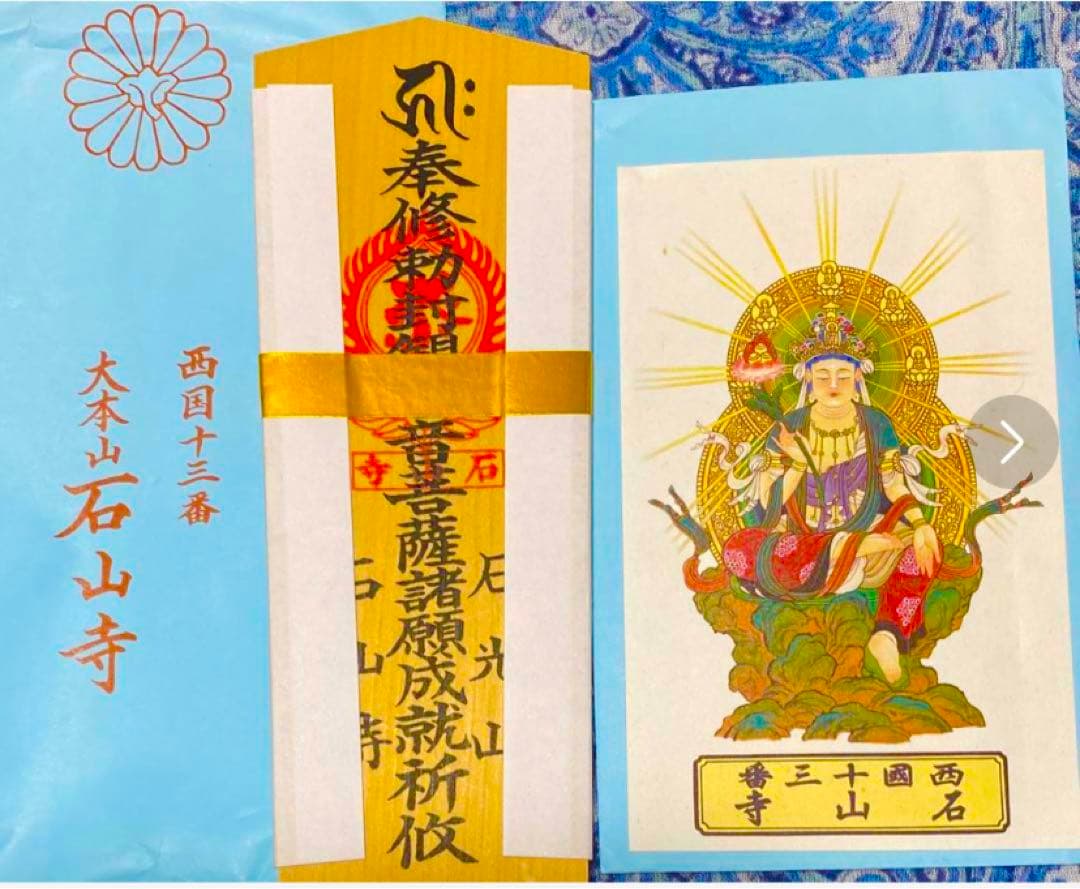 西国十三番
大本山石山寺
奉修勅封観音菩薩諸願成就祈攸
石光山
石山寺
石寺
西國十三番
石山寺